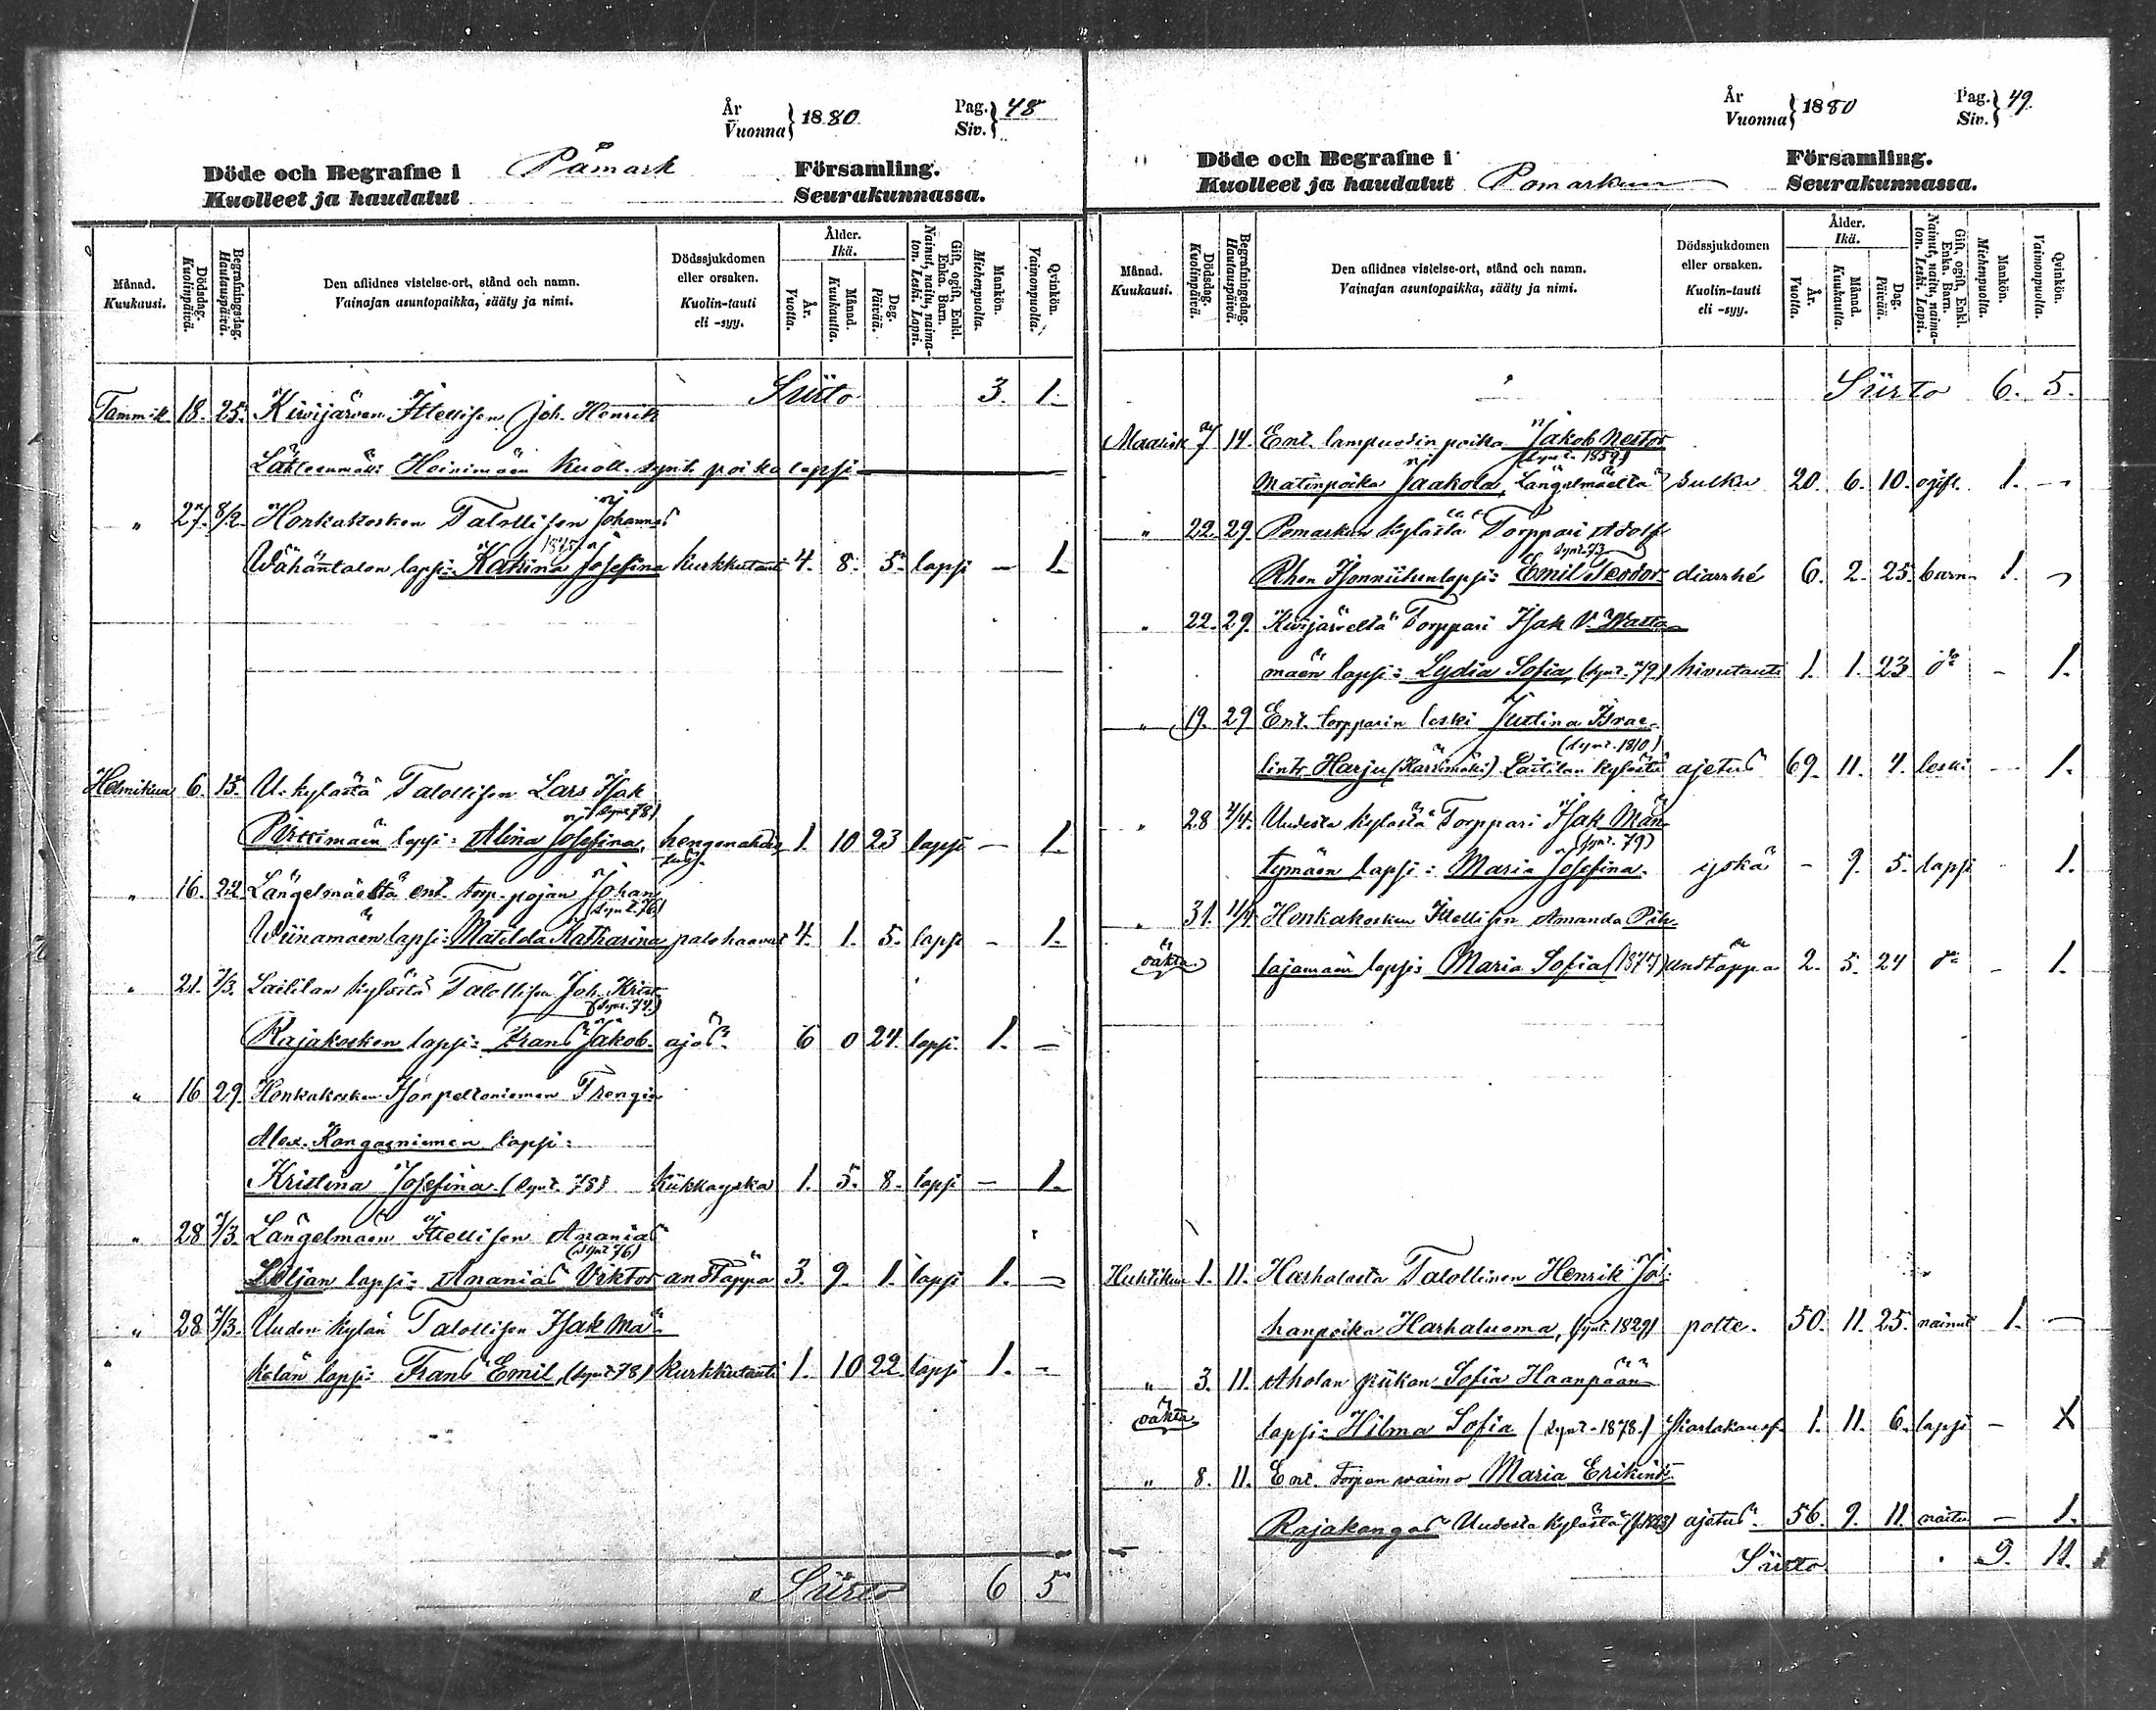 År
Vuonna } 1880.
Pag.
Siv. } 48
Döde och Begrafne i Påmark Församling.
Kuolleet ja haudatut Seurakunnassa.
Månad. Kuukausi.
Dödsdag. Kuolinpäivä.
Begrafningsdag. Hautauspäivä.
Den aflidnes vistelse-ort, stånd och namn.
Vainajan asuntopaikka, sääty ja nimi.
Dödssjukdomen eller orsaken.
Kuolin-tauti eli -syy.
Ålder. Ikä.
År. Vuotta.
Månad. Kuukautta.
Dag. Päivää.
Gift, ogift, Enkl. Enka. Barn.
Nainut, naitu, naima-ton. Leski. Lapsi.
Mankön. Miehenpuolta.
Qvinkön. Vaimonpuolta.
Siirto 3. 1.
Tammik. 18. 25. Kiwijärven Ittellisen Joh. Henrik
Hoinimäen kuoll. synt. poika lapsi
" 27. 8/2. Honkakosken Talollisen Johannes
Wähäntalon lapsi: Katrina Josefina kurkkutauti 4. 8. 5. lapsi — 1.
Helmikuu 6. 15. U. kylästä Talollisen Lars Isak
(synt. 78)
Pirttimäen lapsi: Alina Josefina, hengenahdis- 1. 10 23 lapsi — 1.
" 16. 22. Längelmäeltä ent. torp. pojan Johan
(synt. 76)
Wiinamäen lapsi: Matilda Katharina palohaavat 4. 1. 5. lapsi — 1.
" 21. 7/3. Laililan kylästä Talollisen Joh. Krist.
(synt. 74.)
Rajakosken lapsi: Frans Jakob. ajos. 6 0 24. lapsi. 1. —
" 16 29. Honkakosken Isonpeltoniemen Trengin
Alex. Kangasniemen lapsi:
Kristina Josefina (synt. 78) kiikkayska 1. 5. 8. lapsi — 1.
" 28 7/3. Längelmäen Ittellisen Ananias
(synt 76)
Liljan lapsi: Ananias Viktor andtäppa 3. 9. 1. lapsi 1. —
" 28 7/3. Uuden kylän Talollisen Isak Mä-
kelän lapsi: Frans Emil, (synt 78) kurkkutauti 1. 10 22. lapsi 1. —
Siirto 6 5
År
Vuonna } 1880
Pag.
Siv. } 49.
Döde och Begrafne i Församling.
Kuolleet ja haudatut Pomarkun Seurakunnassa.
Månad. Kuukausi.
Dödsdag. Kuolinpäivä.
Begrafningsdag. Hautauspäivä.
Den aflidnes vistelse-ort, stånd och namn.
Vainajan asuntopaikka, sääty ja nimi.
Dödssjukdomen eller orsaken.
Kuolin-tauti eli -syy.
Ålder. Ikä.
År. Vuotta.
Månad. Kuukautta.
Dag. Päivää.
Gift, ogift, Enkl. Enka. Barn.
Nainut, naitu, naima-ton. Leski. Lapsi.
Mankön. Miehenpuolta.
Qvinkön. Vaimonpuolta.
Siirto 6. 5.
Maalisk. 7 14. Ent. lampuodin poika Jakob Nestor
(synt. 1859)
Matinpoika Jaakola, Längelmäeltä 20. 6. 10. ogift. 1. —
" 22. 29. Pomarkun kylästä Torppari Adolf
synt. 73
Rhen Isonniitun lapsi: Emil Teodor diarrhé 6. 2. 25. barn 1. —
" 22. 29. Kivijärveltä Torppari Isak V. Watta-
mäen lapsi: Lydia Sofia, (synt. 79) hivutauti 1. 1. 23 do — 1.
" 19. 29 Ent. torpparin leski Justina Israe-
(synt. 1810)
lintr. Harju (Harsimäki) Laitilan kylästä ajetus 69. 11. 4. leski — 1.
" 28 4/4. Uudesta kylästä Torppari Isak Män-
(synt. 79)
tymäen lapsi: Maria Josefina. yskä — 9. 5. lapsi 1.
" 31. 11/4. Honkakosken Ittellisen Amanda Pih-
oäkta. lajamäen lapsi: Maria Sofia (1877) andtäppa 2. 5. 24 do — 1.
Huhtikuu 1. 11. Harhalasta Talollinen Henrik Jo-
hanpoika Harhaluoma, (synt. 1829) polte. 50. 11. 25. nainut 1. —
" 3. 11. Aholan piikan Sofia Haanpään
oäkta lapsi: Hilma Sofia (synt. 1878.) 1. 11. 6. lapsi — X
" 8. 11. Ent. Torpan vaimo Maria Erikintr.
Rajakangas Uudesta kylästä ajetus. 56. 9. 11. naitu — 1.
Siirto. 9. 11.